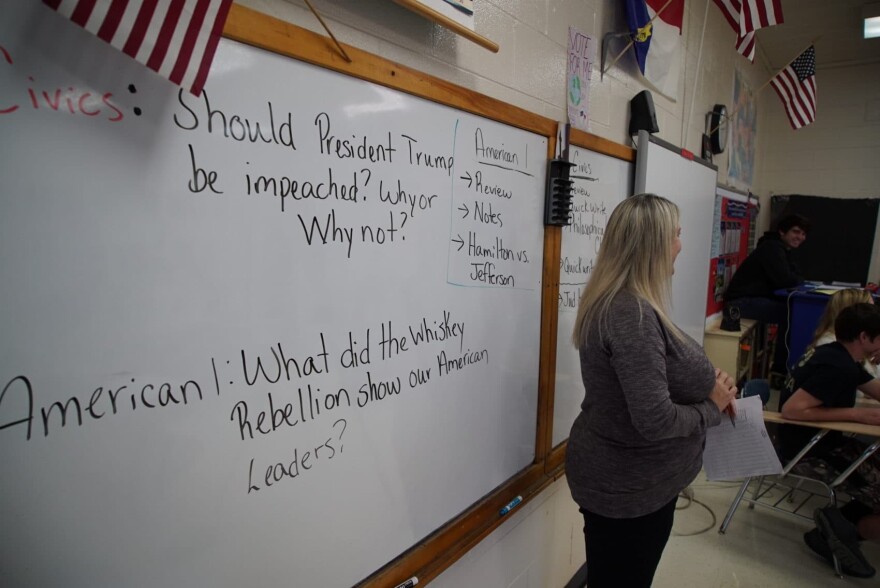 Civics: Should President Trump
be impeached? Why or
Why not?
American 1
→ Review
→ Notes
→ Hamilton vs.
Jefferson
American 1: What did the Whiskey
Rebellion show our American
Leaders?
Civics
Quick Write
Philosophical
VOTE
FOR ME